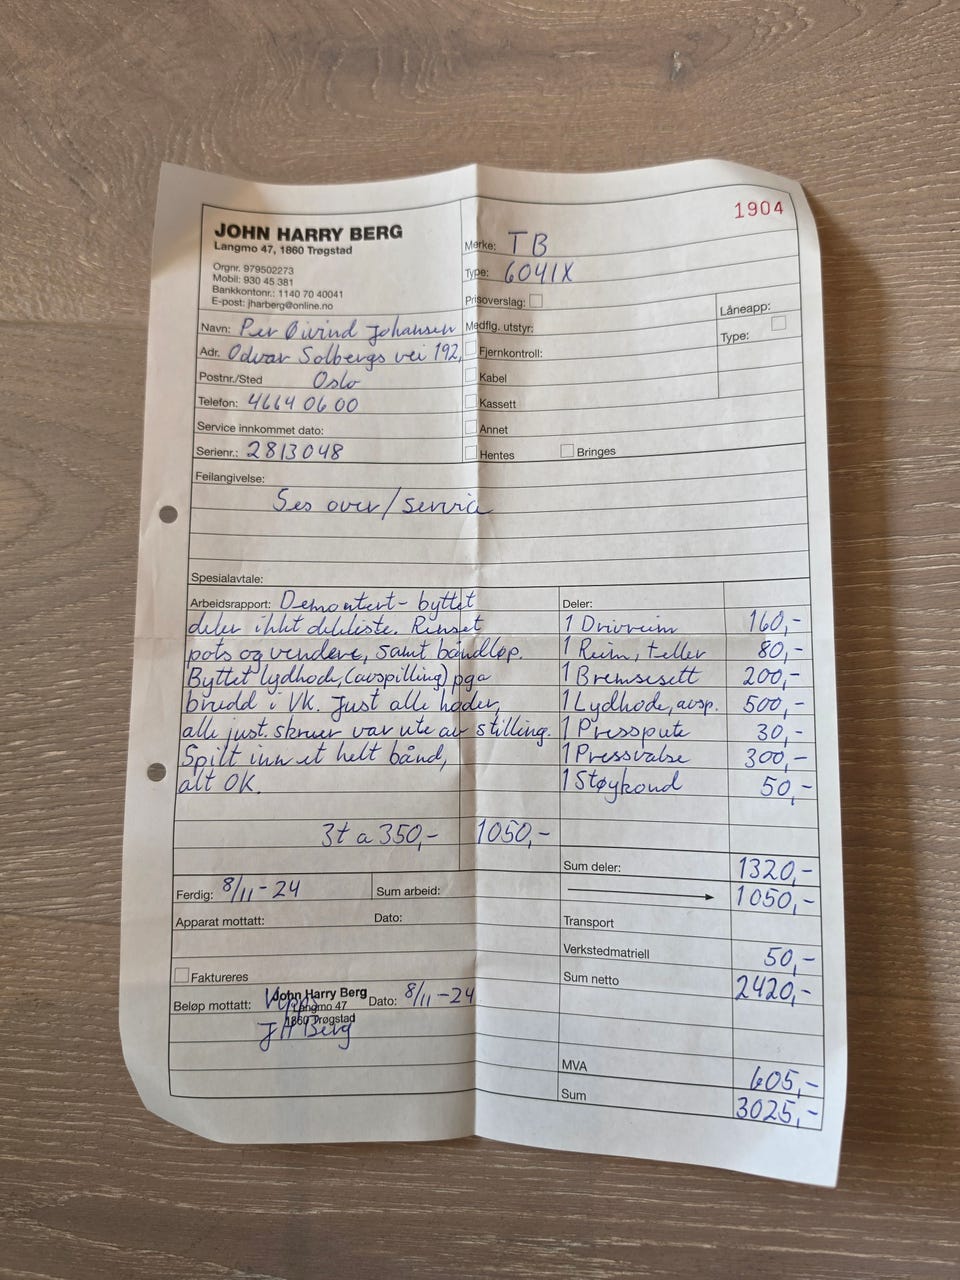 1904
JOHN HARRY BERG
Langmo 47, 1860 Trøgstad
Orgnr. 979502273
Mobil: 930 45 381
Bankkontonr.: 1140 70 40041
E-post: jharberg@online.no
Merke: TB
Type: 6041X
Prisoverslag:
Låneapp:
Type:
Navn: Per Øivind Johansen
Adr. Odvar Solbergs vei 192,
Postnr./Sted Oslo
Telefon: 46640600
Service innkommet dato:
Serienr.: 2813048
Medflg. utstyr:
Fjernkontroll:
Kabel
Kassett
Annet
Hentes
Bringes
Feilangivelse:
Ses over/service
Spesialavtale:
Arbeidsrapport: Demontert - byttet
deler ihht delliste. Renset
pots og vendere, samt båndløp.
Byttet lydhode, (avspilling) pga
brudd i VK. Just alle hoder,
alle just. skruer var ute av stilling.
Spilt inn et helt bånd,
alt OK.
3t a 350,- 1050,-
Deler:
1 Drivreim 160,-
1 Reim, teller 80,-
1 Bremsesett 200,-
1 Lydhode, avsp. 500,-
1 Presspute 30,-
1 Pressvalse 300,-
1 Støykond 50,-
Sum deler: 1320,-
Ferdig: 8/11-24
Sum arbeid: 1050,-
Apparat mottatt: Dato:
Transport
Verkstedmatriell 50,-
Faktureres
Sum netto 2420,-
Beløp mottatt: Dato: 8/11-24
John Harry Berg
Langmo 47
1860 Trøgstad
JH Berg
MVA 605,-
Sum 3025,-